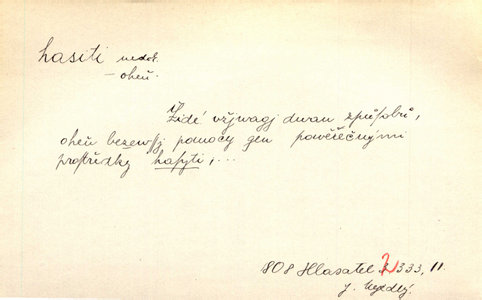 hasiti nedok.
— oheň.
Židé vžjwagj dwau způſobů,
oheň bezewſſj pomocy gen powěrečnými
proſtředky haſyti, ...
808 Hlasatel 2 333, 11.
J. Nejedlý.